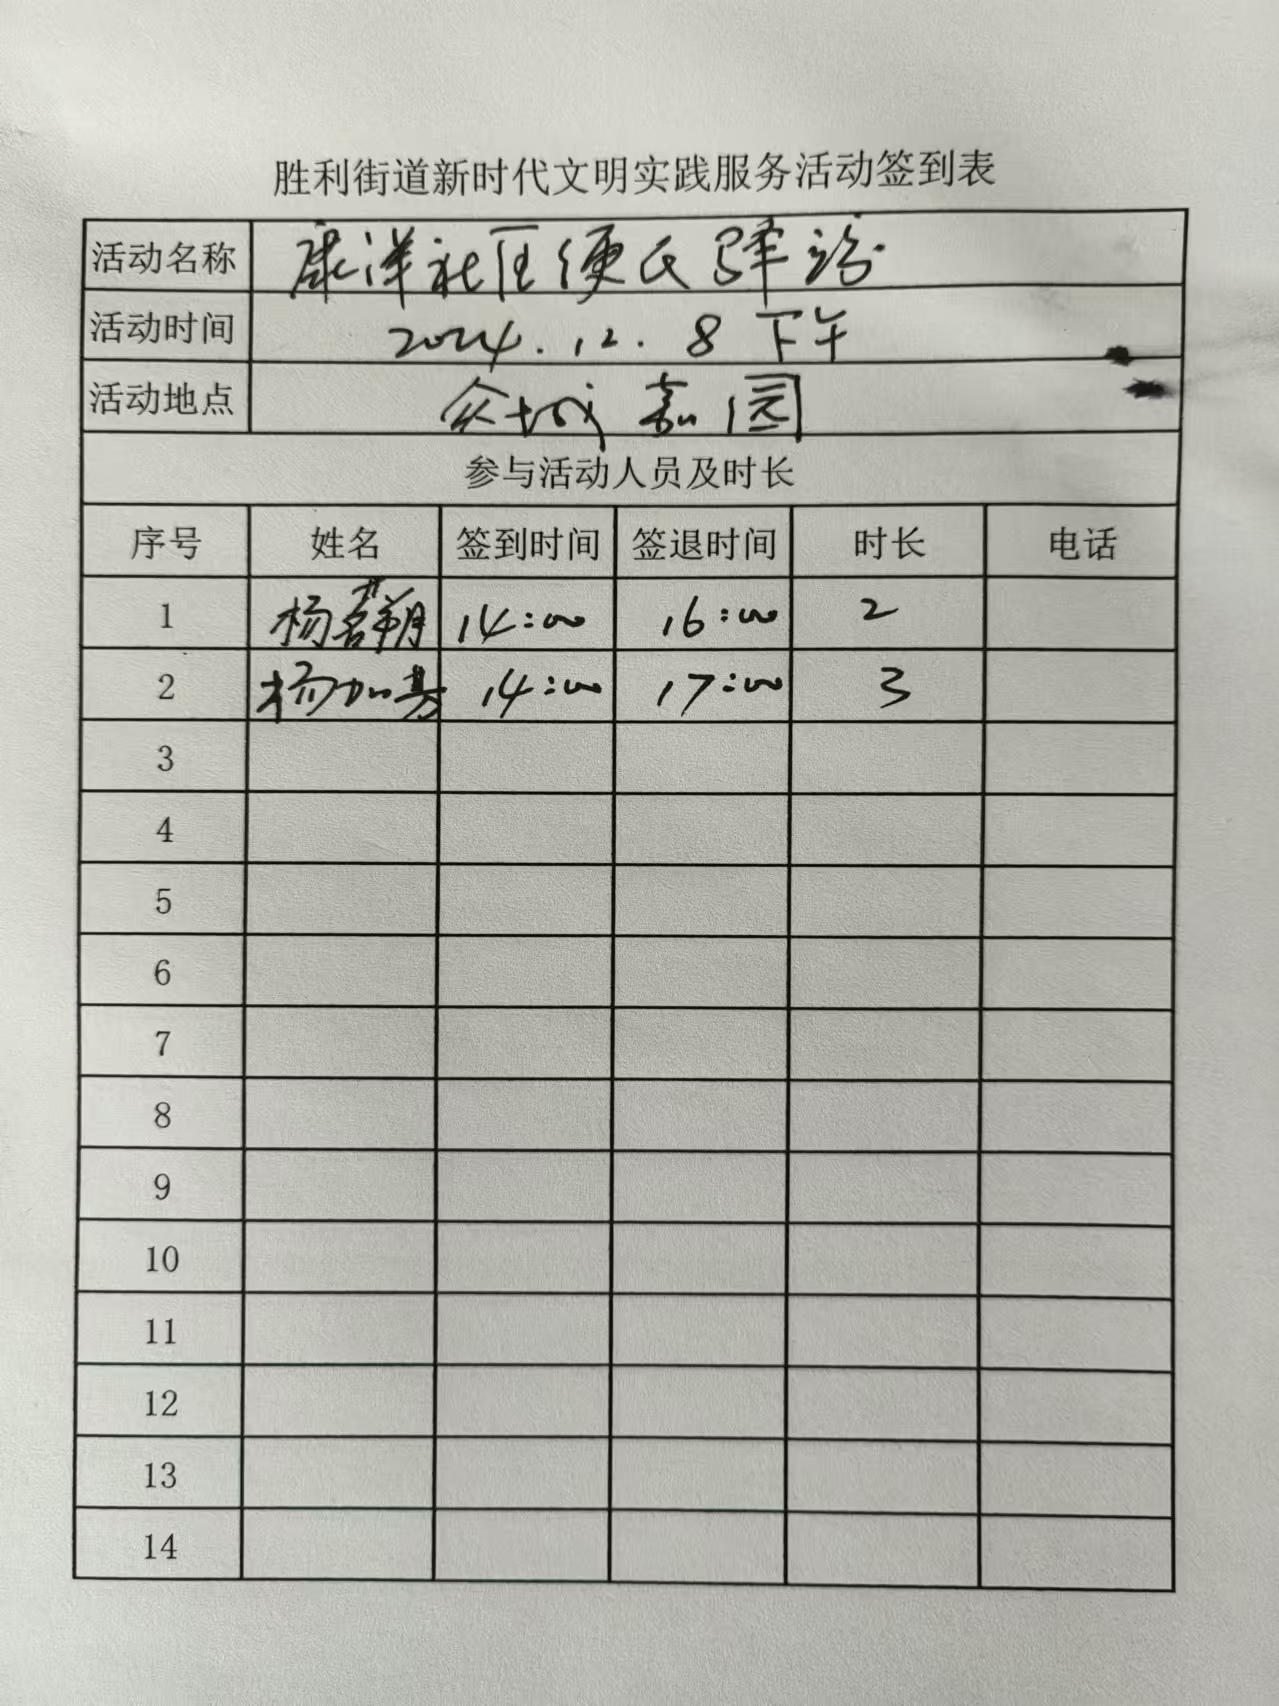 胜利街道新时代文明实践服务活动签到表
活动名称 康洋社区便民驿站
活动时间 2024.12.8 下午
活动地点 众城嘉园
参与活动人员及时长
序号 姓名 签到时间 签退时间 时长 电话
1 杨茗朔 14:00 16:00 2
2 杨加 14:00 17:00 3
3
4
5
6
7
8
9
10
11
12
13
14